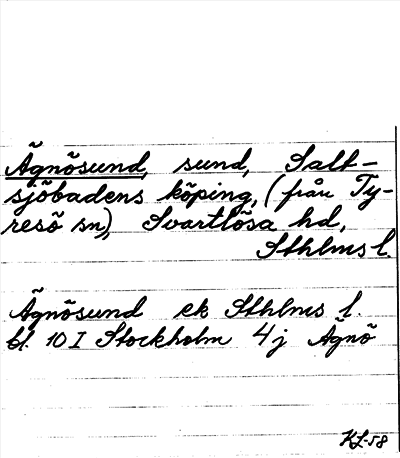 Ägnösund, sund, Salt-
sjöbadens köping, (från Ty-
resö sn), Svartlösa hd,
Sthlms l.
Ägnösund ek Sthlms l.
bl. 10 I Stockholm 4j Ägnö
KL-58